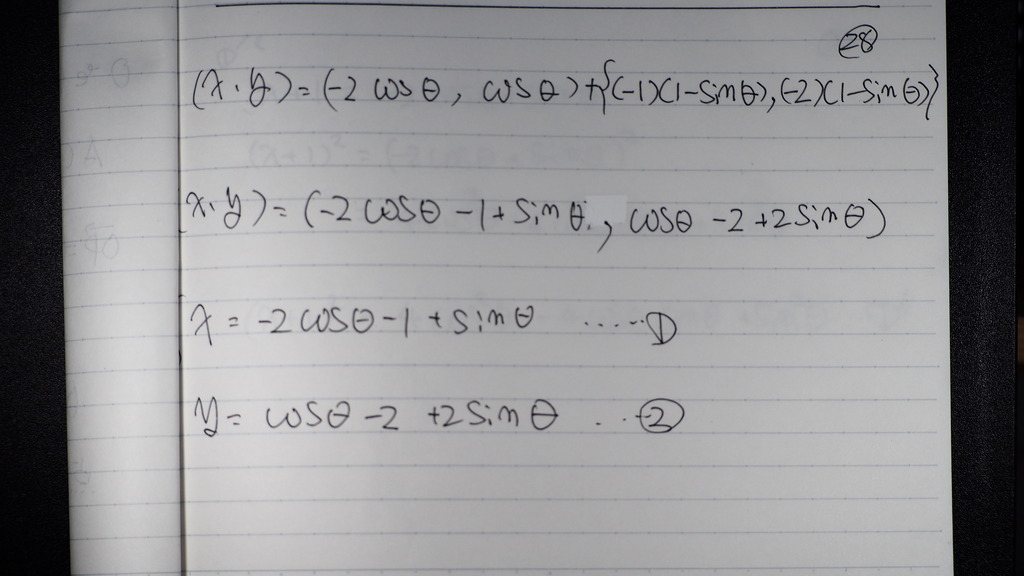 28
(x.y)=(-2 cosθ, cosθ)+{(-1)(1-Sinθ),(-2)(1-Sinθ)}
(x.y)=(-2cosθ-1+Sinθ, cosθ-2+2Sinθ)
x=-2cosθ-1+sinθ ……①
y=cosθ-2+2Sinθ …②